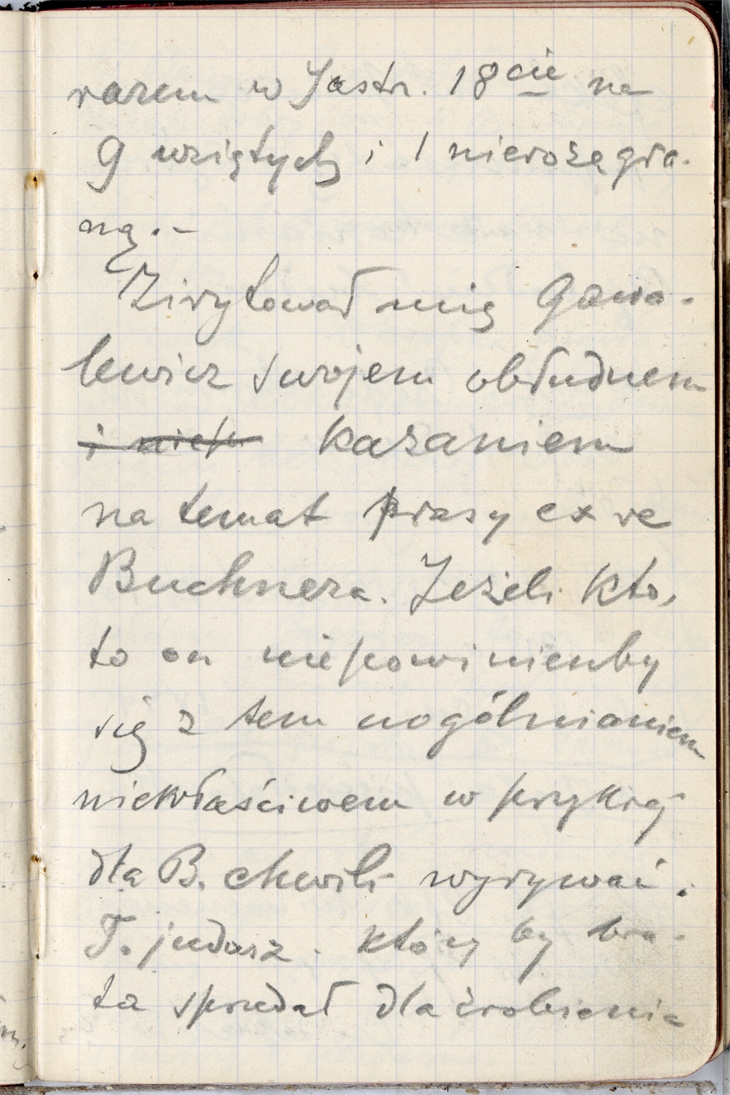 razem w Jastr. 18cie na
9 wziętych i 1 nierozegra-
ną.—
Zirytował mię Gawa-
lewicz swojem obłudnem
kazaniem
na temat prasy ex re
Buchnera. Jeżeli kto,
to on niepowinienby
się z tem uogólnianiem
niewłaściwem w przykrej
dla B. chwili wyrywać.
T. judasz. który by bra-
ta sprzedał dla zrobienia